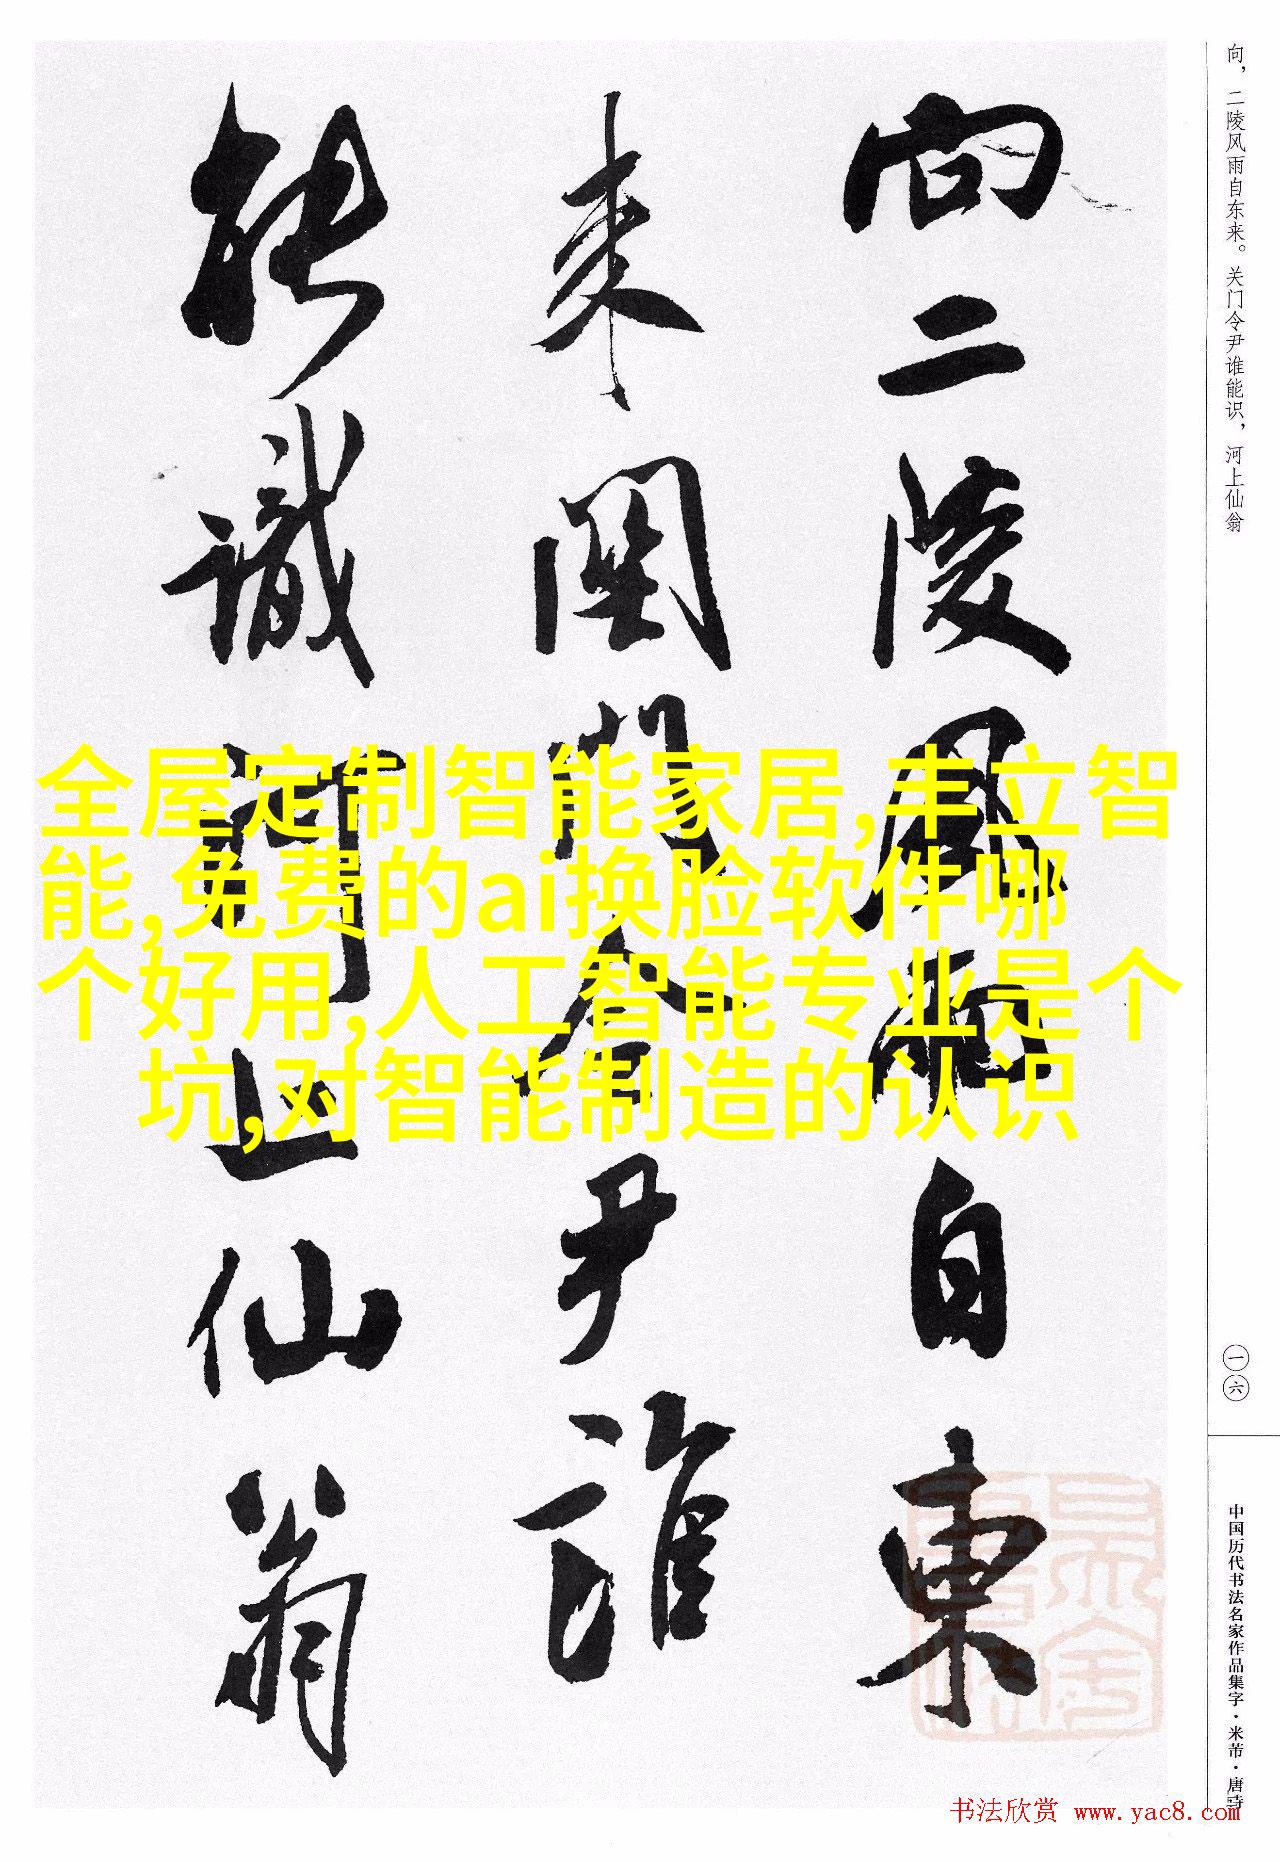 向，二陵风雨自东来。关门令尹谁能识，河上仙翁
向二陵風雨自東
来關門令尹誰
能識河上仙翁
全屋定制智能家居,丰立智
能,免费的ai换脸软件哪
个好用,人工智能专业是个
坑,对智能制造的认识
一六
中国历代书法名家作品集字·米芾·唐诗
书法欣赏 www.yac8.com